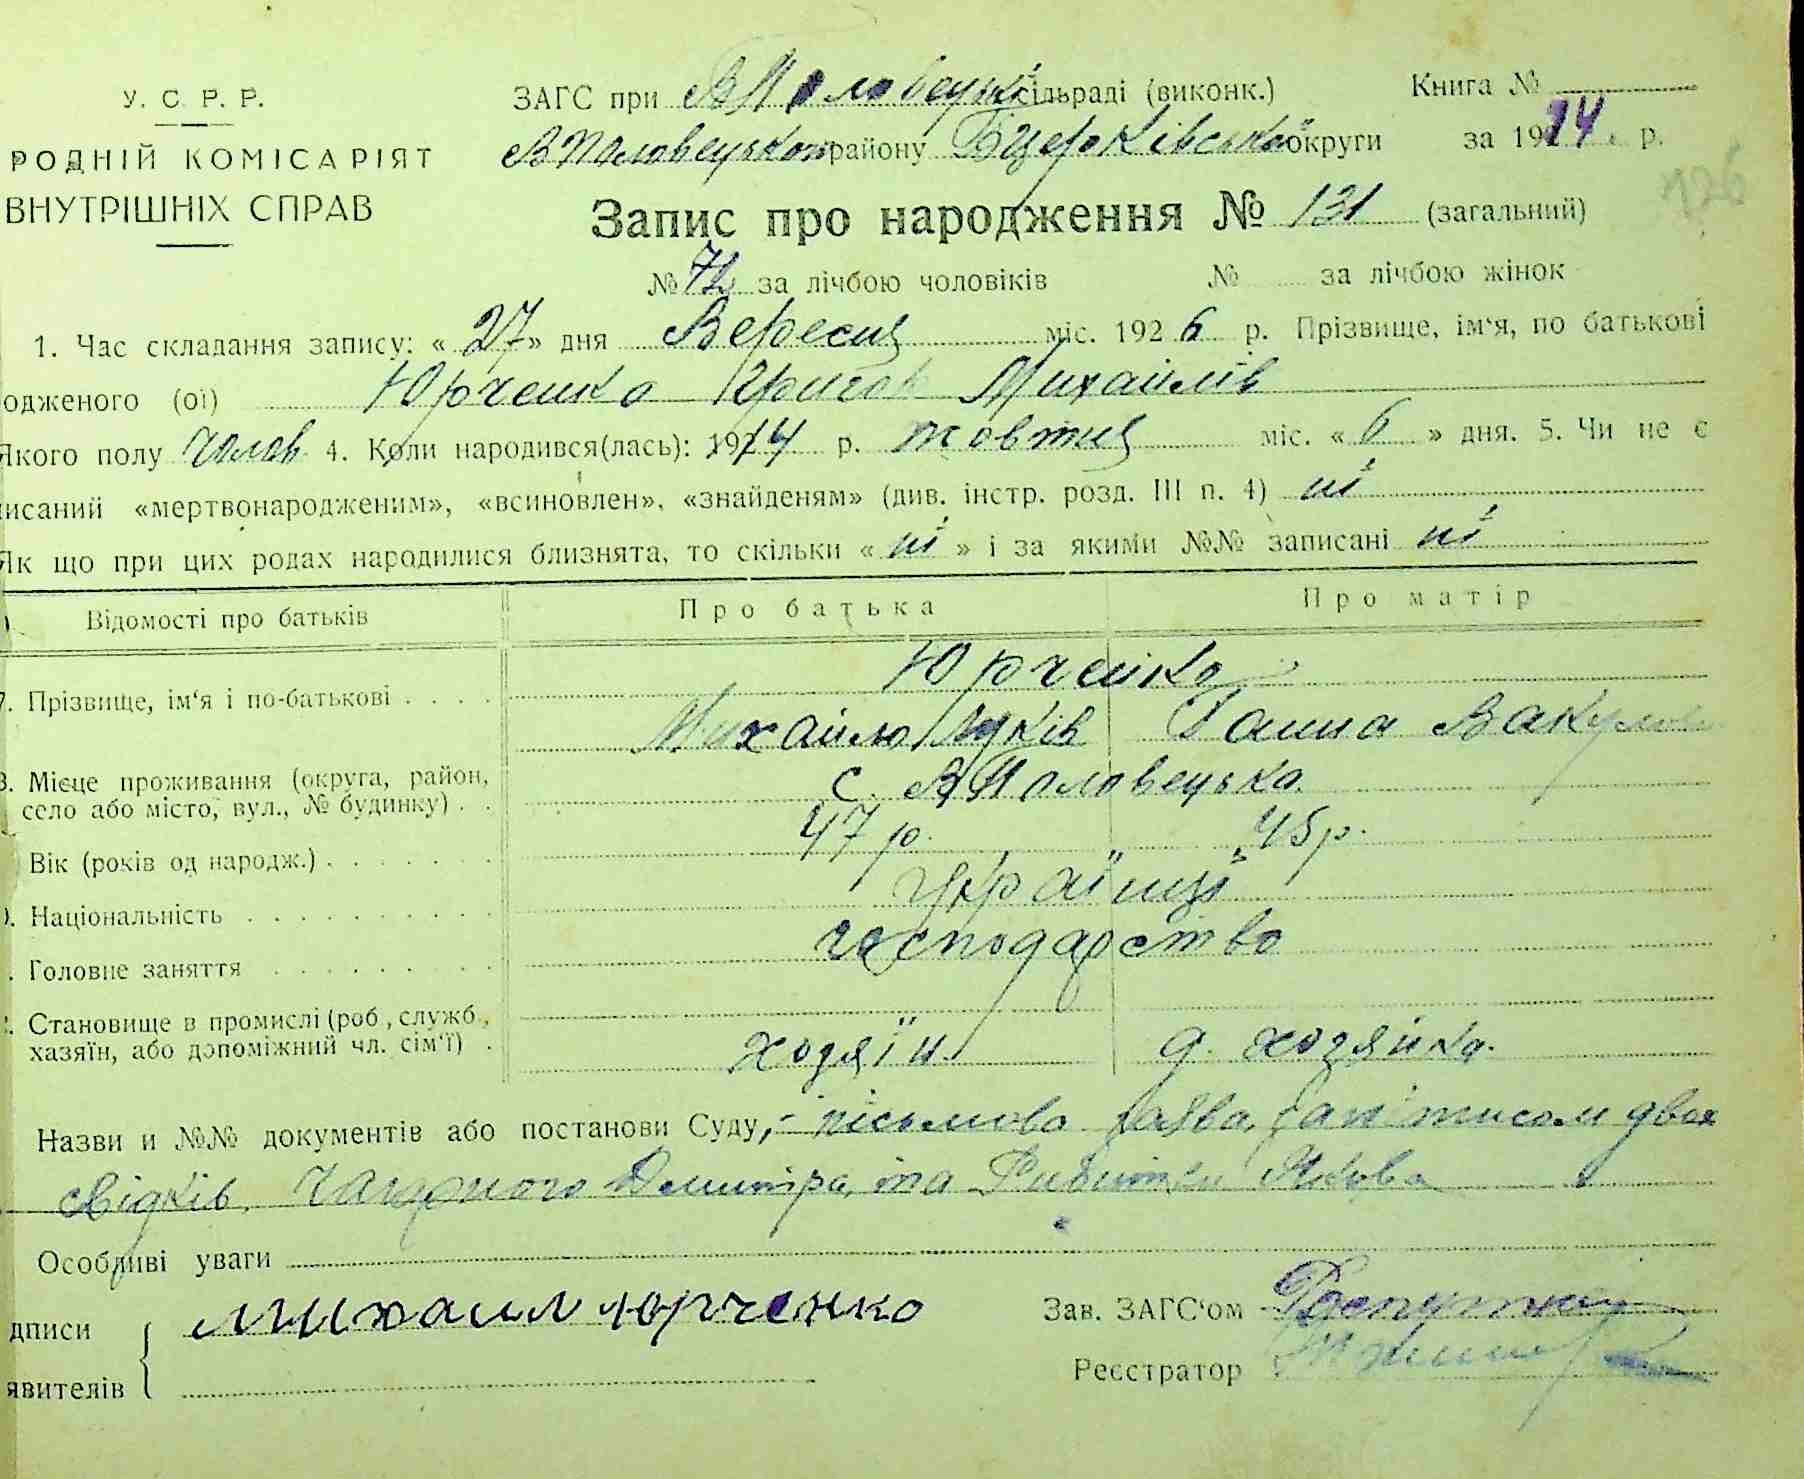 У. С. Р. Р.
РОДНІЙ КОМІСАРІЯТ
ВНУТРІШНІХ СПРАВ
ЗАГС при В Половецькій сільраді (виконк.) Книга №
В Половецького району Б Церківської округи за 1914 р.
126
Запис про народження № 131 (загальний)
№ 72 за лічбою чоловіків № за лічбою жінок
1. Час складання запису: « 27 » дня Вересня міс. 1926 р. Прізвище, ім'я, по батькові
одженого (ої) Юрченко Григор Михайлів
Якого полу Чолов 4. Коли народився(лась): 1914 р. жовтня міс. « 6 » дня. 5. Чи не є
писаний «мертвонародженим», «всиновлен», «знайденям» (див. інстр. розд. III п. 4) ні
Як що при цих родах народилися близнята, то скільки « ні » і за якими №№ записані ні
Відомості про батьків Про батька Про матір
7. Прізвище, ім'я і по-батькові Юрченко
Михайло Луків Ганна Вакулова
8. Місце проживання (округа, район, село або місто, вул., № будинку) с. В Половецька
Вік (років од народж.) 47 р. 45 р.
Національність Українці
Головне заняття господарство
Становище в промислі (роб, служб, хазяїн, або допоміжний чл. сім'ї) хозяїн. д. хозяйка.
Назви и №№ документів або постанови Суду, - письмова заява за підписом двох
свідків, Дмитра, та Якова
Особливі уваги
дписи Михаил Юрченко Зав. ЗАГС'ом
явителів Реєстратор